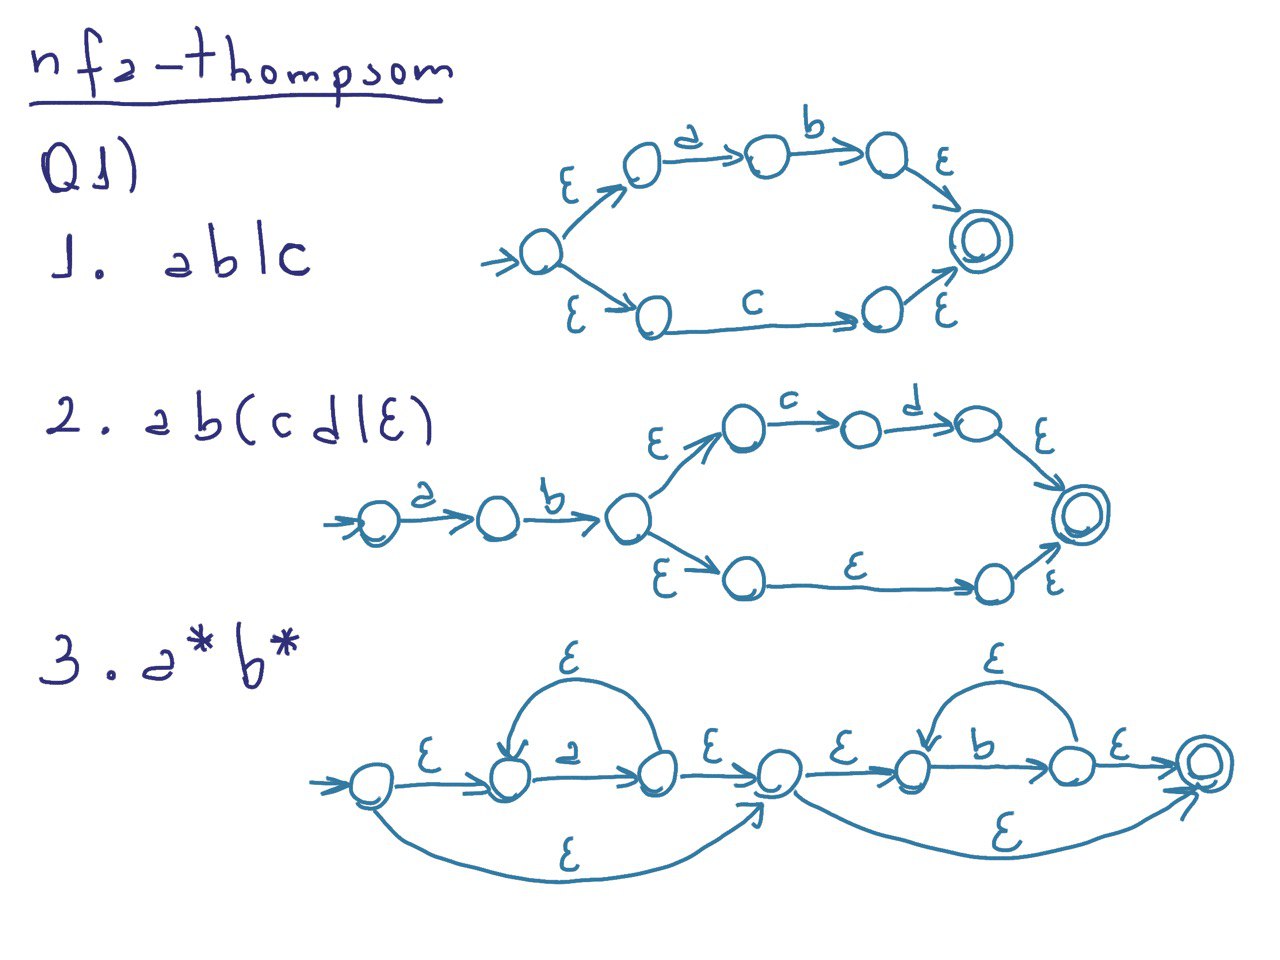 nfa-thompsom
Q1)
1. ab|c
ε a b ε
ε c ε
2. ab(cd|ε)
a b ε c d ε
ε ε ε
3. a*b*
ε ε
ε a ε ε b ε
ε ε